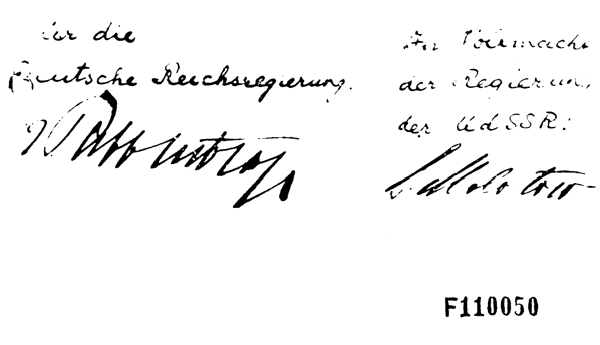 Für die
Deutsche Reichsregierung.
Ribbentrop
In Vollmacht
der Regierung
der UdSSR:
W. Molotow
F110050